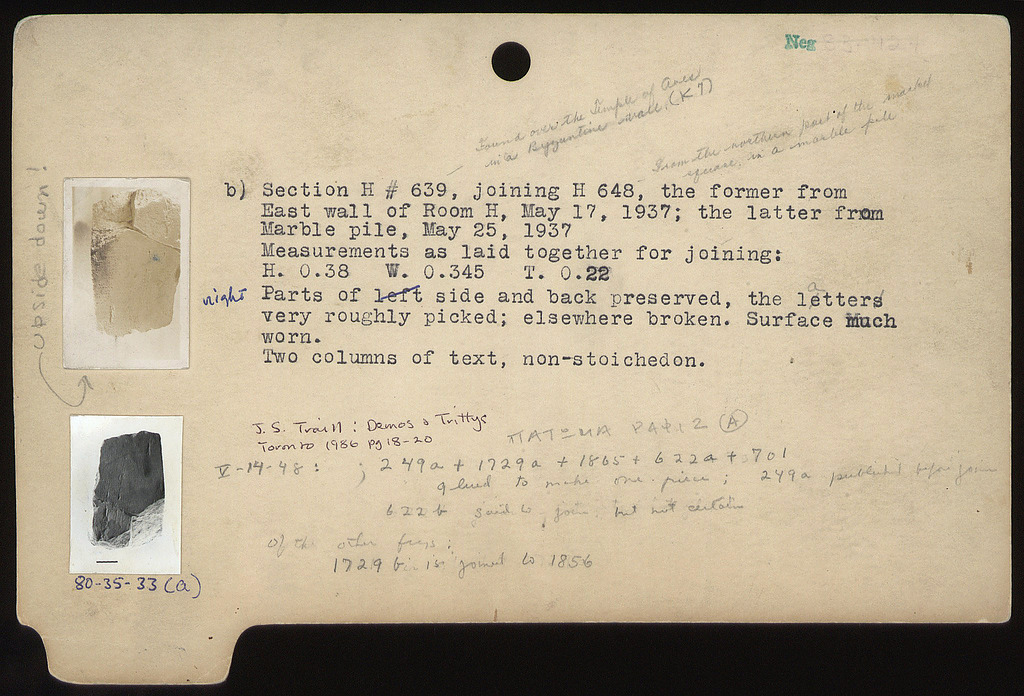 Neg
Found over the Temple of Ares
in a Byzantine wall, (K 7)
From the northern part of the market
square, in a marble pile
b) Section H # 639, joining H 648, the former from
East wall of Room H, May 17, 1937; the latter from
Marble pile, May 25, 1937
Measurements as laid together for joining:
H. 0.38 W. 0.345 T. 0.22
right Parts of left side and back preserved, the latter
very roughly picked; elsewhere broken. Surface much
worn.
Two columns of text, non-stoichedon.
upside down!
J.S. Traill: Demos & Trittys
Toronto 1986 pg 18-20
(A)
V-14-48: ; 249a + 1729a + 1865 + 622a + 701
glued to make one piece; 249a published before
622 b said to join, but not certain
Of the other frags:
1729 b is joined to 1856
80-35-33 (a)